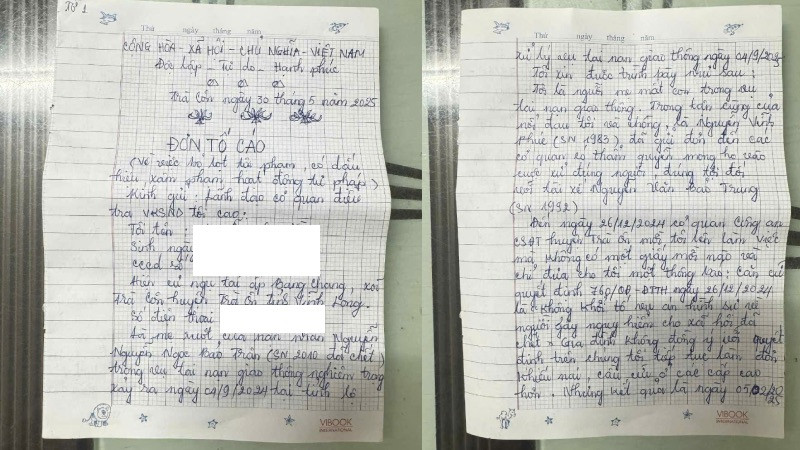 Tờ 1
Thứ ngày tháng năm
CỘNG HÒA - XÃ HỘI - CHỦ NGHĨA - VIỆT NAM
Độc lập - Tự do - Hạnh phúc
Trà Côn ngày 30 tháng 5 năm 2025
ĐƠN TỐ CÁO
(Về việc bỏ lọt tội phạm, có dấu
hiệu xâm phạm hoạt động tư pháp)
Kính gửi: Lãnh đạo cơ quan điều
tra VKSND tối cao:
Tôi tên:
Sinh ngày
cccd số
Hiện cư ngụ tại ấp Bang Chang, xã
Trà Côn huyện Trà Ôn tỉnh Vĩnh Long.
Số điện thoại
Là mẹ ruột của nạn nhân Nguyễn
Nguyễn Ngọc Bảo Trân (SN 2010 đã chết)
trong vụ tai nạn giao thông nghiêm trọng
xảy ra ngày 04/9/2024 tại tỉnh lộ
VIBOOK
INTERNATIONAL
Thứ ngày tháng năm
xử lý vụ tai nạn giao thông ngày 04/9/202
Tôi xin được trình bày như sau:
Tôi là người mẹ mất con trong vụ
tai nạn giao thông. Trong tận cùng của
nỗi đau tôi và chồng là Nguyễn Vĩnh
Phúc (SN 1983) đã gửi đơn đến các
cơ quan có thẩm quyền mong họ vào
cuộc xử đúng người, đúng tội đối
với tài xế Nguyễn Văn Bảo Trung
(SN 1992)
Đến ngày 26/12/2024 cơ quan Công an
CSĐT huyện Trà Ôn mời tôi lên làm việc
mà không có một giấy mời nào và
chỉ đưa cho tôi một thông báo: Căn cứ
quyết định 760/QĐ-ĐTTH ngày 26/12/2024
là "Không khởi tố vụ án hình sự vì
người gây nguy hiểm cho xã hội đã
chết". Gia đình không đồng ý với quyết
định trên chúng tôi tiếp tục làm đơn
khiếu nại, cầu cứu ở các cấp cao
hơn. Nhưng kết quả là ngày 05/02/20
25
VIBOOK
INTERNATIONAL